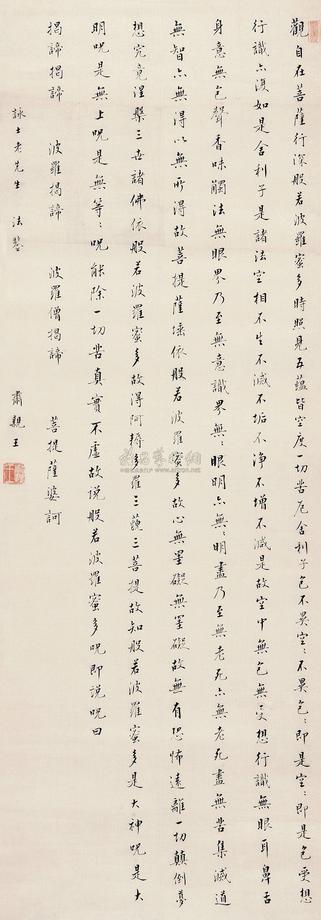 觀自在菩薩行深般若波羅蜜多時照見五蘊皆空度一切苦厄舍利子色不異空〻不異色〻即是空〻即是色受想
行識亦復如是舍利子是諸法空相不生不滅不垢不淨不增不減是故空中無色無受想行識無眼耳鼻舌
身意無色聲香味觸法無眼界乃至無〻意識界無〻眼明亦無〻明盡乃至無老死亦無老死盡無苦集滅道
無智亦無得以無所得故菩提薩埵依般若波羅蜜多故心無罣礙無罣礙故無有恐怖遠離一切顛倒夢
想究竟涅槃三世諸佛依般若波羅蜜多故得阿耨多羅三藐三菩提故知般若波羅蜜多是大神呪是大
明呪是無上呪是無等〻呪能除一切苦真實不虛故說般若波羅蜜多呪即說呪曰
揭諦揭諦 波羅揭諦 波羅僧揭諦 菩提薩婆訶
詠士老先生 法鑒 肅親王